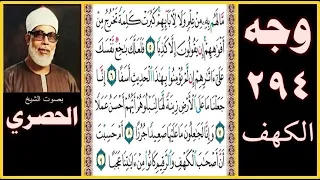 وجه
٢٩٤
الكهف
مَّا لَهُم بِهِۦ مِنْ عِلْمٍ وَلَا لِـَٔابَآئِهِمْ كَبُرَتْ كَلِمَةً تَخْرُجُ مِنْ
أَفْوَٰهِهِمْ إِن يَقُولُونَ إِلَّا كَذِبًا ٥ فَلَعَلَّكَ بَٰخِعٌ نَّفْسَكَ
عَلَىٰٓ ءَاثَٰرِهِمْ إِن لَّمْ يُؤْمِنُوا۟ بِهَٰذَا ٱلْحَدِيثِ أَسَفًا ٦ إِنَّا
جَعَلْنَا مَا عَلَى ٱلْأَرْضِ زِينَةً لَّهَا لِنَبْلُوَهُمْ أَيُّهُمْ أَحْسَنُ عَمَلًا
٧ وَإِنَّا لَجَٰعِلُونَ مَا عَلَيْهَا صَعِيدًا جُرُزًا ٨ أَمْ حَسِبْتَ
أَنَّ أَصْحَٰبَ ٱلْكَهْفِ وَٱلرَّقِيمِ كَانُوا۟ مِنْ ءَايَٰتِنَا عَجَبًا ٩
بصوت الشيخ
الحصري